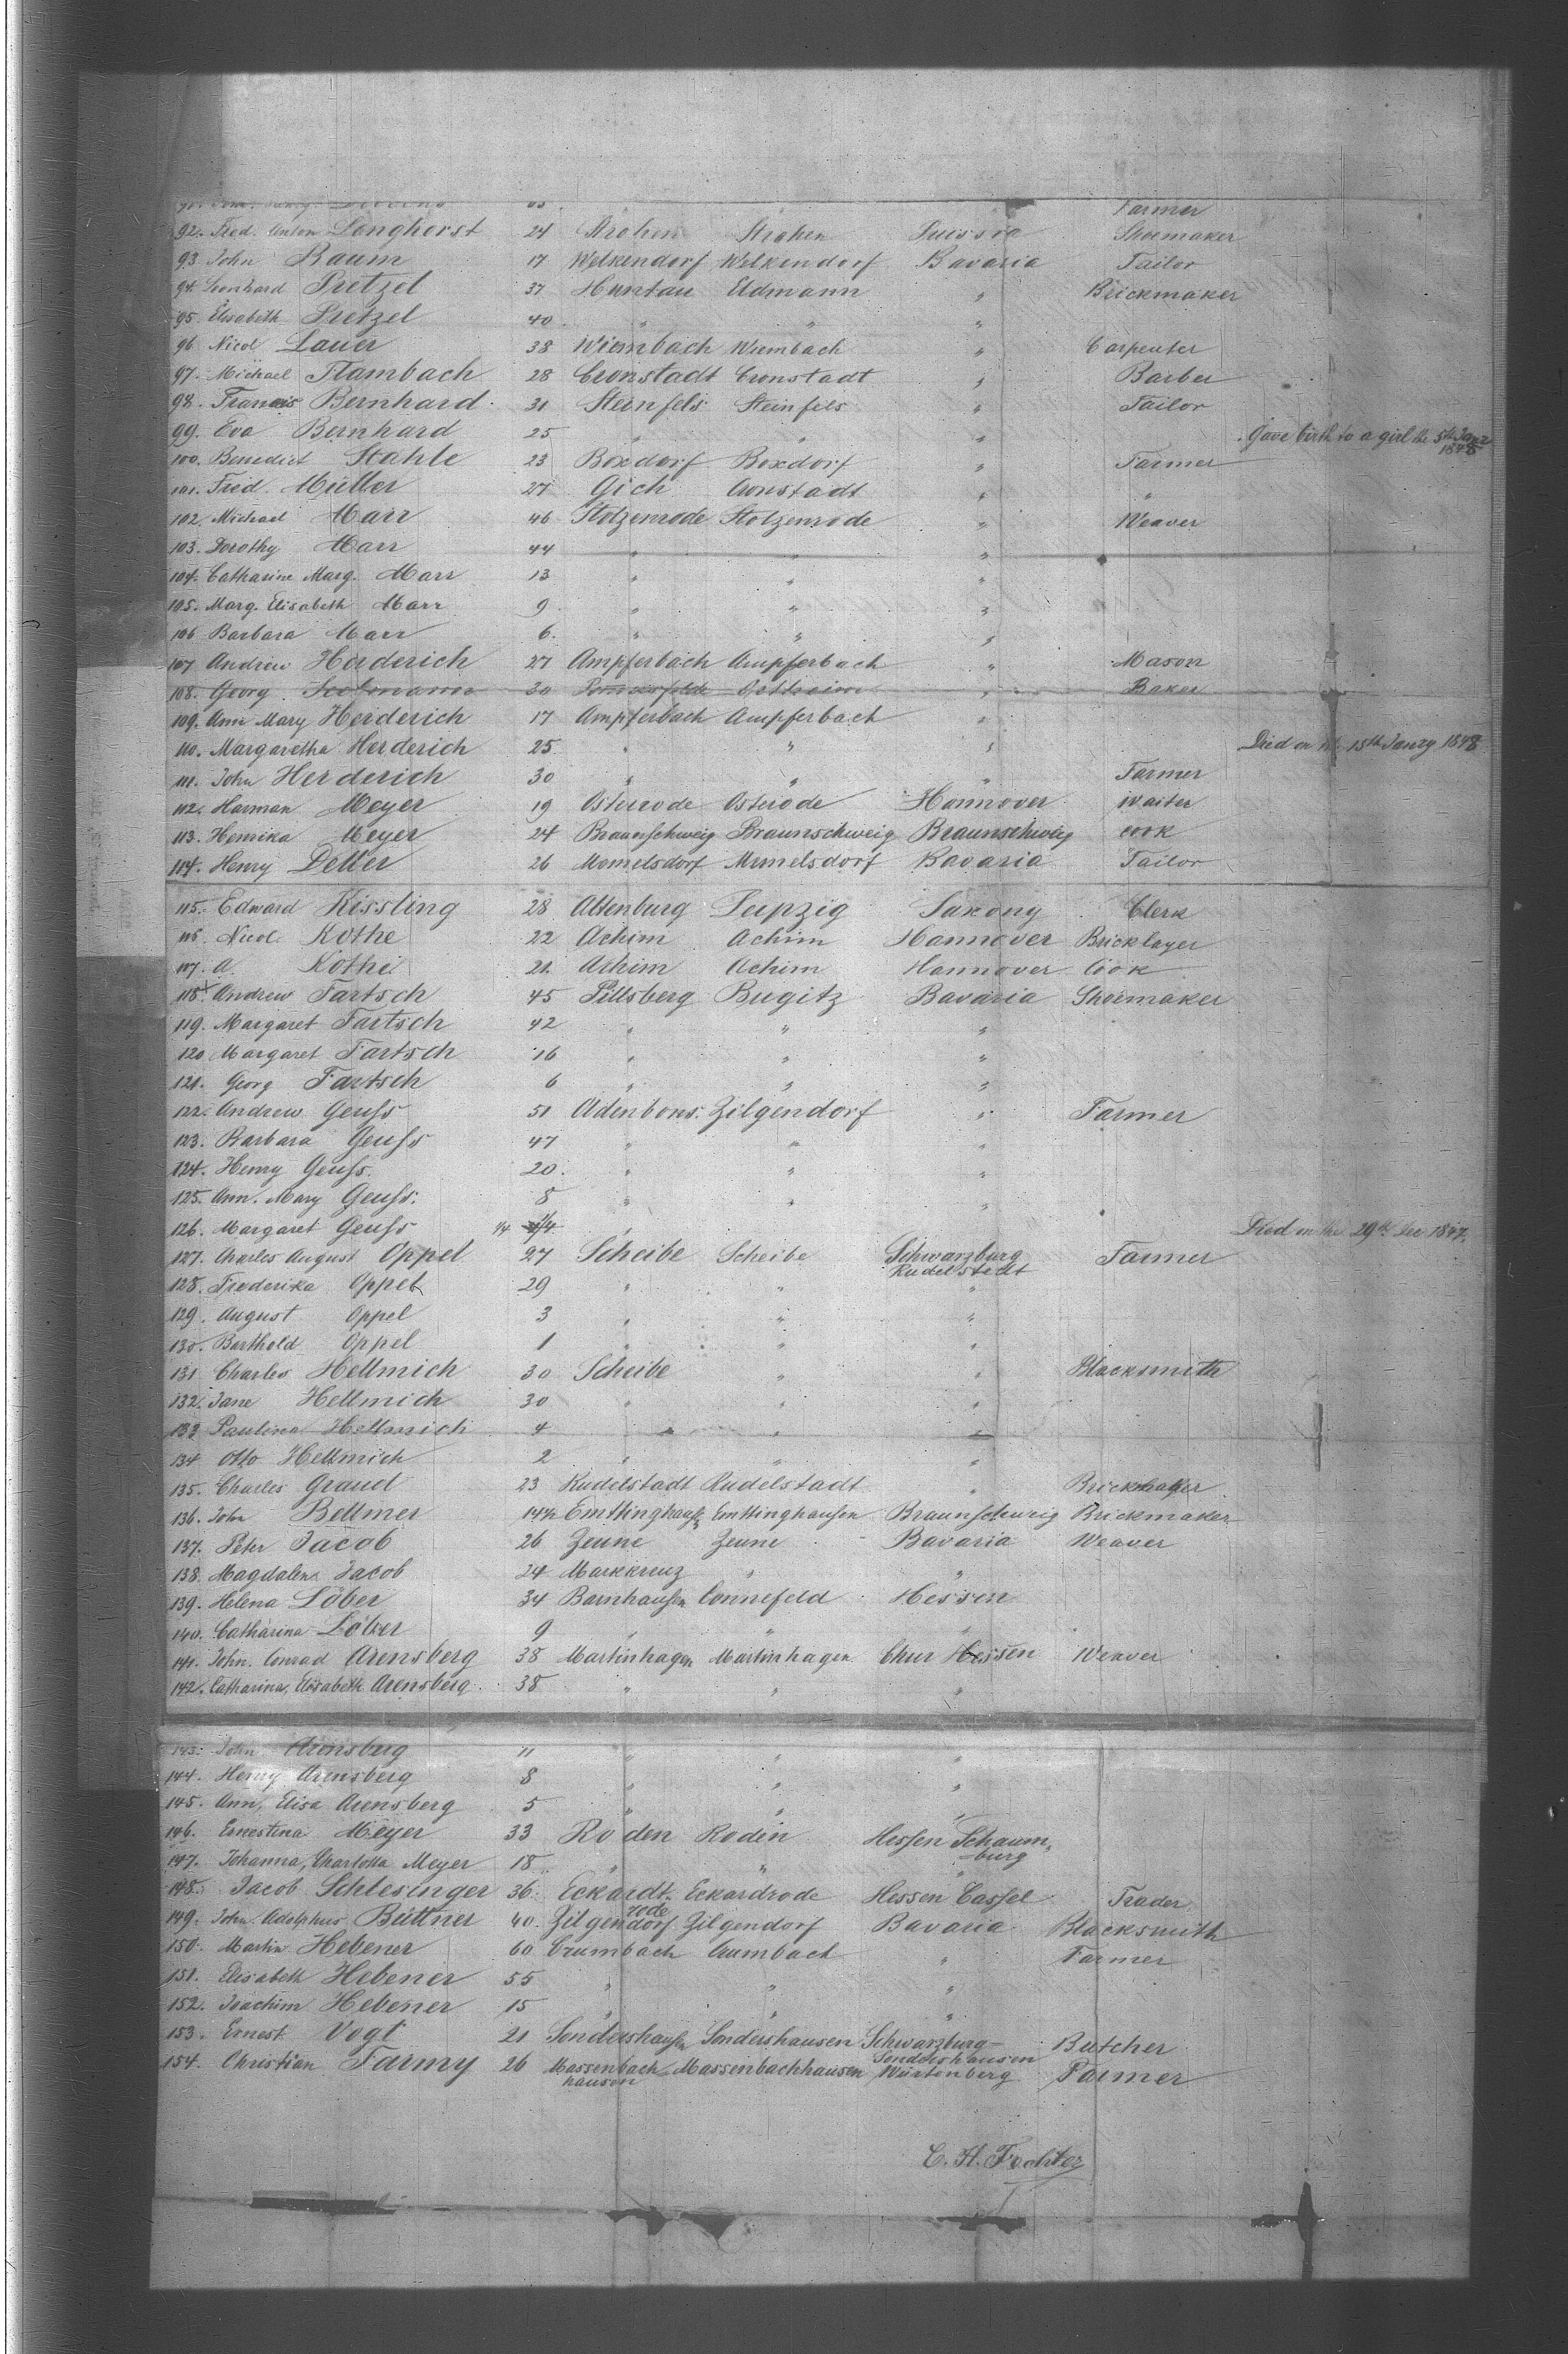 91. 
Farmer
92. Fred. Anton Langhorst 24 Strohen Strohen Prussia Shoemaker
93 John Baum 17 Welkendorf Welkendorf Bavaria Tailor
94. Leonhard Pretzel 37 Huntau Eldmann " Brickmaker
95. Elisabeth Pretzel 40 " " "
96 Nicol Lauer 38 Wiembach Wiembach " Carpenter
97. Michael Stambach 28 Cronstadt Cronstadt " Barber
98. Francis Bernhard 31 Steinfels Steinfels " Tailor
99. Eva Bernhard 25 " " " Gave birth to a girl the 5th Janr 1848
100. Benedict Stahle 23 Boxdorf Boxdorf " Farmer
101. Fred. Müller 27 Gich Cronstadt " "
102. Michael Marr 46 Stolzenrode Stolzenrode " Weaver
103. Dorothy Marr 44 " " "
104. Catharine Marg. Marr 13 " " "
105. Marg. Elisabeth Marr 9 " " "
106 Barbara Marr 6. " " "
107. Andrew Herderich 27 Ampferbach Ampferbach " Mason
108. Georg 30 " Baker
109. Ann Mary Herderich 17 Ampferbach Ampferbach "
110. Margaretha Herderich 25 " " " Died on the 15th Janry 1848
111. John Herderich 30 " " " Farmer
112. Harman Meyer 19 Osterode Osterode Hannover Waiter
113. Henrika Meyer 24 Braunschweig Braunschweig Braunschweig cook
114. Henry Detter 26 Memelsdorf Memelsdorf Bavaria Tailor
115. Edward Kissling 28 Altenburg Leipzig Saxony Clerk
116. Nicol. Kothe 22 Achim Achim Hannover Bricklayer
117. A. Kothe 21. Achim Achim Hannover Cook
118. Andrew Fartsch 45 Pillsberg Bugitz Bavaria Shoemaker
119. Margaret Fartsch 42 " " "
120 Margaret Fartsch 16 " " "
121. Georg Fartsch 6 " " "
122. Andrew Geuss 51 Adenbons. Zilgendorf " Farmer
123. Barbara Geuss 47 " " "
124. Henry Geuss. 20. " " "
125. Ann. Mary Geuss. 8 " " "
126. Margaret Geuss 1/4 " Died on the 29th Dec 1847.
127. Charles August Oppel 27 Scheibe Scheibe Schwarzburg Rudelstadt Farmer
128. Frederika Oppel 29 " " "
129. August Oppel 3 " " "
130. Barthold Oppel 1 " " "
131 Charles Hellmich 30 Scheibe " " Blacksmith
132. Jane Hellmich 30 " " "
133 Paulina Hellmich 4 " " "
134 Otto Hellmich 2 " " "
135. Charles Graud 23 Rudelstadt Rudelstadt " Brickmaker
136. John Bellmer 14½ Emttinghausen Emttinghausen Braunschweig Brickmaker
137. Peter Jacob 26 Zeune Zeune Bavaria Weaver
138 Magdalena Jacob 24 Markkreuz " "
139. Helena Löber 34 Barnhausen Connefeld Hessen
140. Catharina Löber 9 " " "
141. John. Conrad Arensberg 38 Martinhagen Martinhagen Chur Hessen Weaver
142. Catharina, Elisabeth Arensberg. 38 " " "
143. John Arensberg 11 " " "
144. Henry Arensberg 8 " " "
145. Ann, Elisa Arensberg 5 " " "
146. Ernestina Meyer 33 Roden Roden Hessen Schaumburg
147. Johanna, Charlotta Meyer 18 " " "
148. Jacob Schlesinger 36. Eckardtrode Eckardrode Hessen Cassel Trader
149. John. Adolphus Büttner 40. Zilgendorf Zilgendorf Bavaria Blacksmith
150. Martin Hebener 60 Crumbach Crumbach " Farmer
151. Elisabeth Hebener 55 " " "
152. Joachim Hebener 15 " " "
153. Ernest Vogt 21 Sondershausen Sondershausen Schwarzburg-Sondershausen Butcher
154. Christian Farmy 26 Massenbachhausen Massenbachhausen Würtenberg Farmer
C. H. Fechter